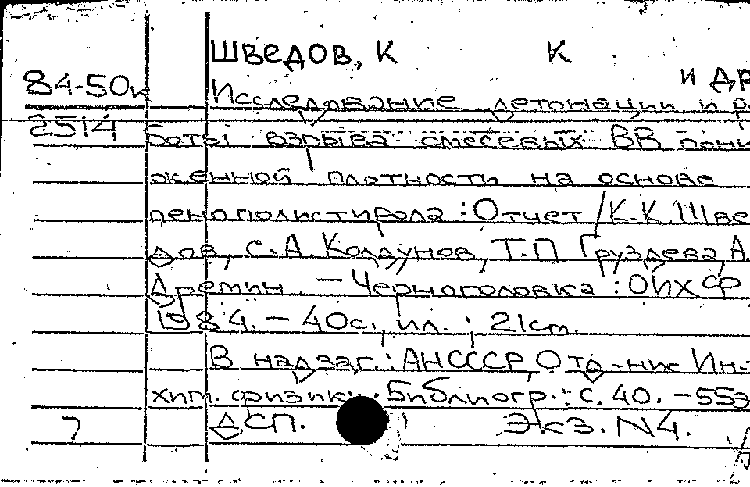 Шведов, К К
и др
84-50к Исследование детонации и ра
2514 боты взрыва смесевых ВВ пони
женной плотности на основе
пенополистирола : Отчет / К.К. Шве
дов, С.А. Колдунов, Т.П. Груздева, А.
Дремин. — Черноголовка : ОИХФ
1984. — 40с., ил. ; 21см.
В надзаг.: АНСССР, Отд-ние Ин-
хим. физики. Библиогр.: с. 40. — 55э
7 ДСП. Экз. N4.